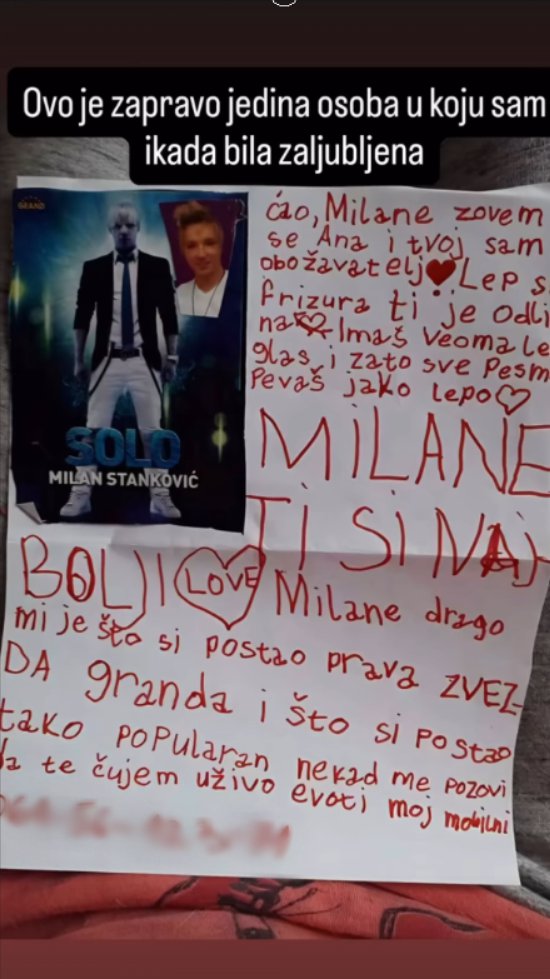 Ovo je zapravo jedina osoba u koju sam
ikada bila zaljubljena
GRAND
SOLO
MILAN STANKOVIĆ
ćao, Milane zovem
se Ana i tvoj sam
obožavatelj Lep s
frizura ti je odli
na Imaš veoma le
glas i zato sve Pesm
Pevaš jako lepo
MiLANE
Ti Si NAj
BOLJI LOVE Milane drago
mi je što si postao prava ZVEZ-
DA granda i što si postao
tako poPularan nekad me pozovi
da te čujem uživo evoti moj mobilni